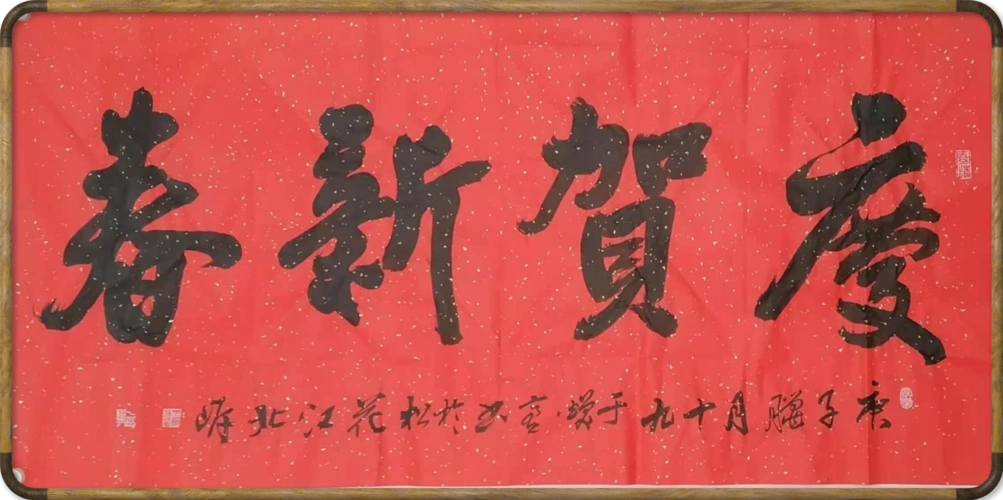 慶賀新春
庚子臘月十九于 於松花江北岸